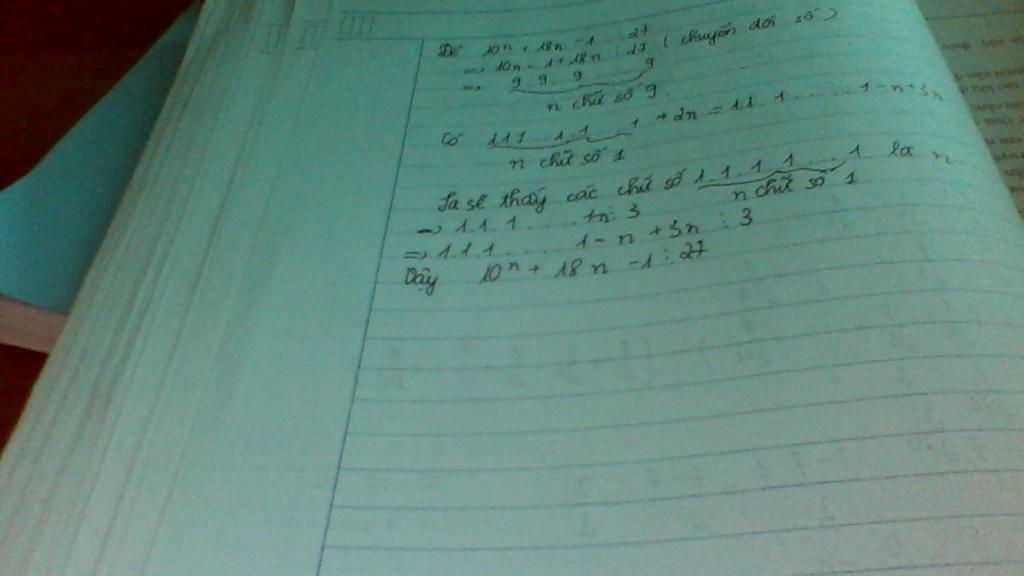 Để 10ⁿ + 18n - 1 ⋮ 27
=> 10n - 1 + 18n ⋮ 27 ( chuyển đổi số )
=> 9 9 9 9
n chữ số 9
Có 111 1.1 1 + 2n = 11.1.......1 - n + 3n
n chữ số 1
Ta sẽ thấy các chữ số 1.1.1.1....1 là n
n chữ số 1
=> 1.1.1.....1n ⋮ 3
=> 1.1.1.......1 - n + 3n ⋮ 3
Vậy 10ⁿ + 18n - 1 ⋮ 27